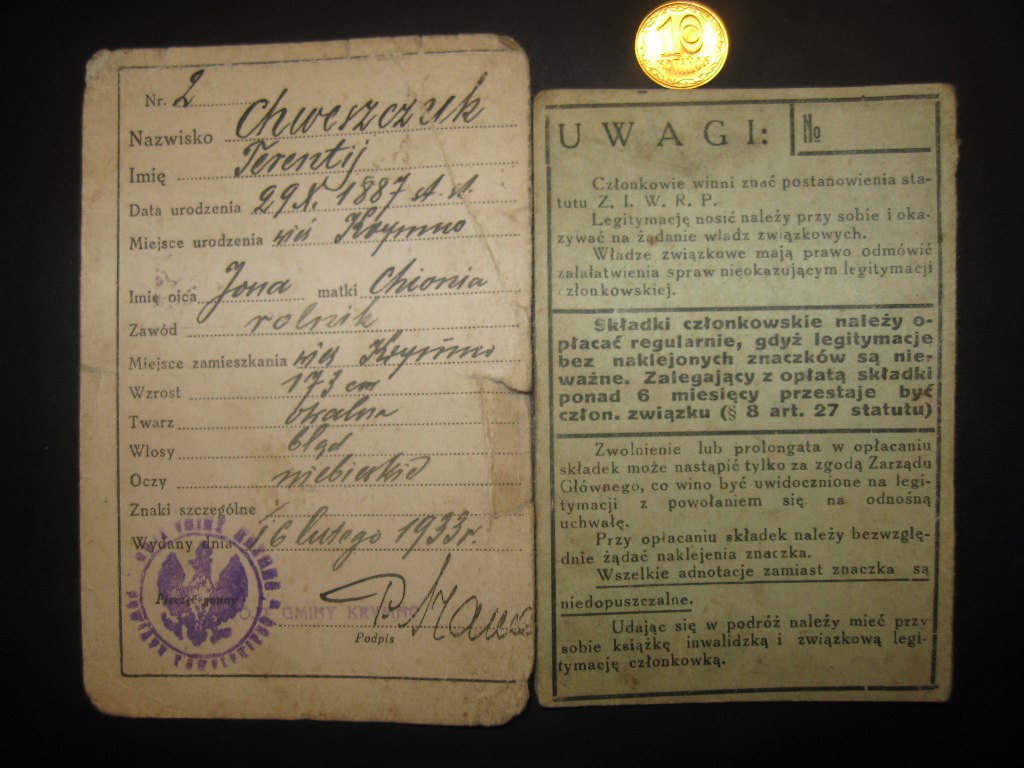 Nr. 2
Nazwisko Chweszczuk
Imię Terentij
Data urodzenia 29 X. 1887 st. st.
Miejsce urodzenia wieś Krymno
Imię ojca Jona matki Chionia
Zawód rolnik
Miejsce zamieszkania wieś Krymno
Wzrost 173 cm
Twarz owalna
Włosy bląd
Oczy niebieskie
Znaki szczególne /
Wydany dnia 16 lutego 1933 r.
Pieczęć gminy
GMINY KRYMNO
Podpis
10
UWAGI: №
Członkowie winni znać postanowienia sta-
tutu Z. I. W. R. P.
Legitymację nosić należy przy sobie i oka-
zywać na żądanie władz związkowych.
Władze związkowe mają prawo odmówić
załalatwienia spraw nieokazującym legitymacji
członkowskiej.
Składki członkowskie należy o-
płacać regularnie, gdyż legitymacje
bez naklejonych znaczków są nie-
ważne. Zalegający z opłatą składki
ponad 6 miesięcy przestaje być
człon. związku (§ 8 art. 27 statutu)
Zwolnienie lub prolongata w opłacaniu
składek może nastąpić tylko za zgodą Zarządu
Głównego, co wino być uwidocznione na legi-
tymacji z powołaniem się na odnośną
uchwałę.
Przy opłacaniu składek należy bezwzglę-
dnie żądać naklejenia znaczka.
Wszelkie adnotacje zamiast znaczka są
niedopuszczalne.
Udając się w podróż należy mieć przy
sobie książkę inwalidzką i związkową legi-
tymację członkowką.